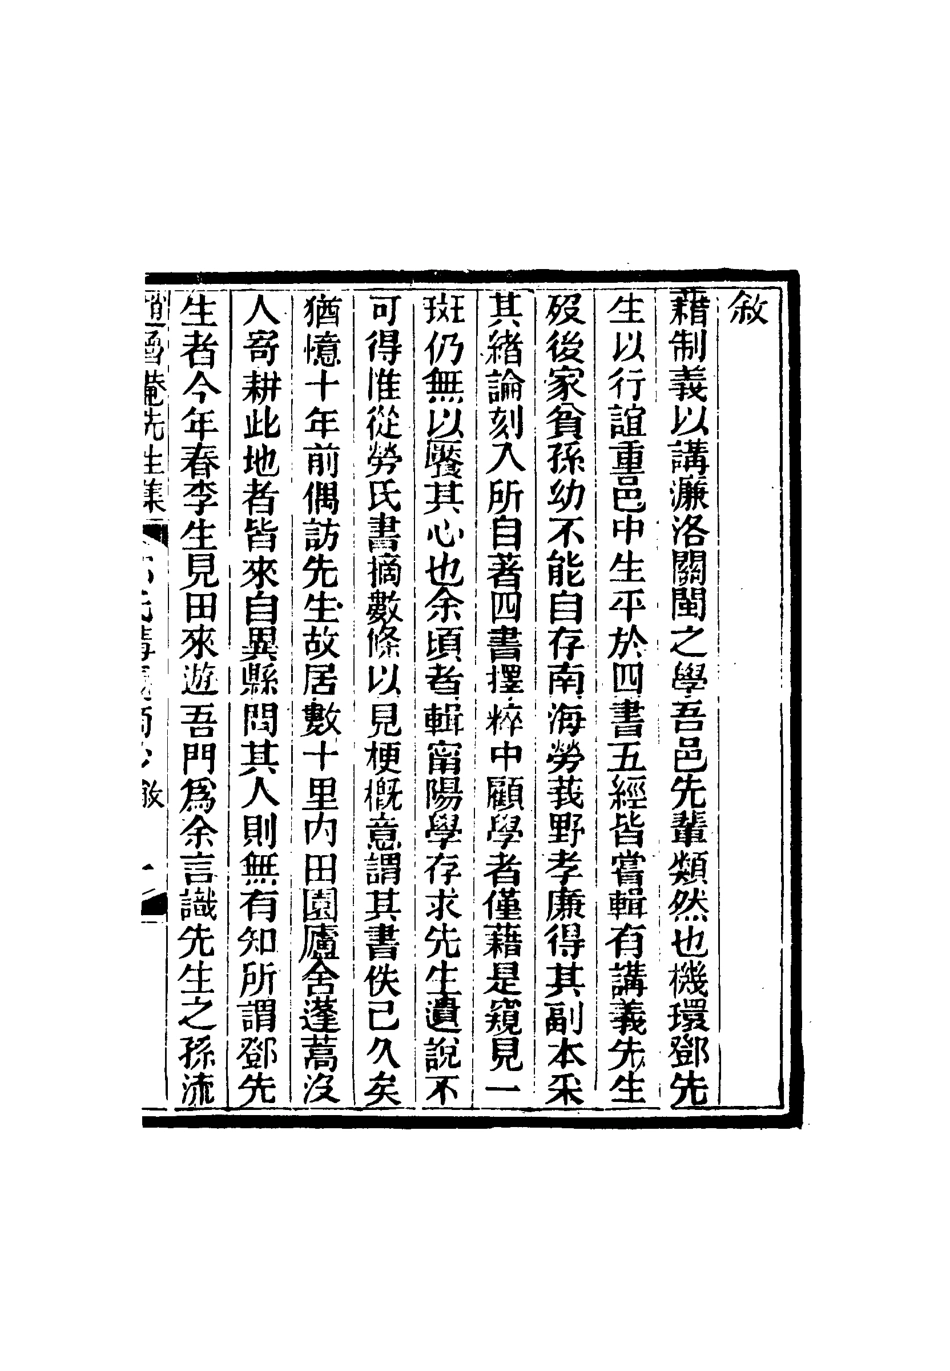 敘
藉制義以講濂洛關閩之學吾邑先輩類然也機環鄧先
生以行誼重邑中生平於四書五經皆嘗輯有講義先生
歿後家貧孫幼不能自存南海勞莪野孝廉得其副本采
其緒論刻入所自著四書擇粹中顧學者僅藉是窺見一
斑仍無以饜其心也余頃者輯甯陽學存求先生遺說不
可得惟從勞氏書摘數條以見梗概意謂其書佚已久矣
猶憶十年前偶訪先生故居數十里內田園廬舍蓬蒿沒
人寄耕此地者皆來自異縣問其人則無有知所謂鄧先
生者今年春李生見田來遊吾門為余言識先生之孫流
先生集
敘
一